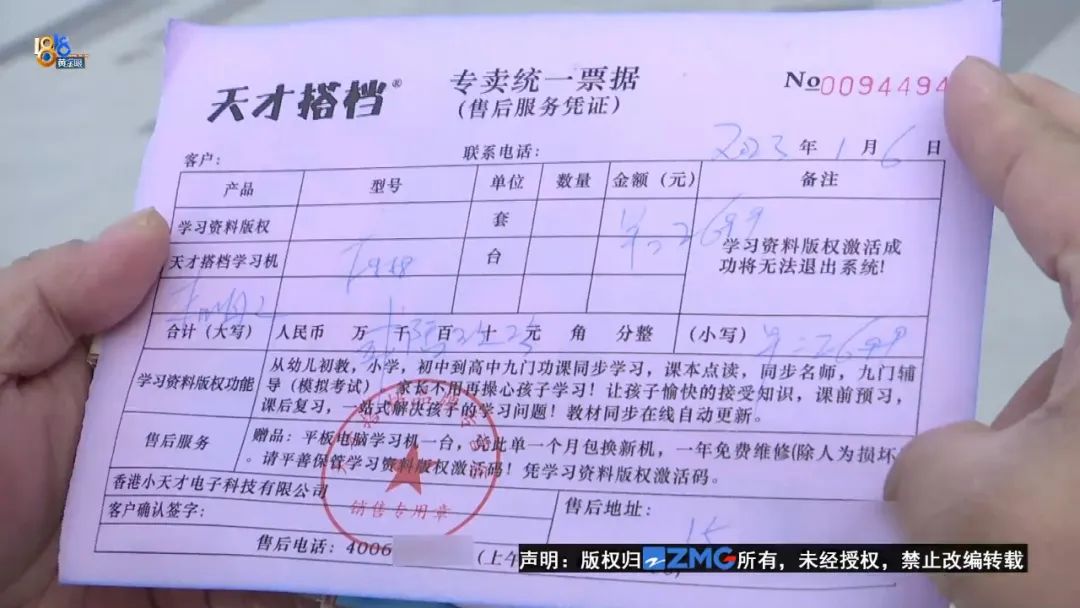 1818
黄金眼
天才搭档® 专卖统一票据 No 0094494
(售后服务凭证)
2023 年 1 月 6 日
客户: 联系电话:
产品 型号 单位 数量 金额（元） 备注
学习资料版权 套 2699
学习资料版权激活成功将无法退出系统!
天才搭档学习机 台
合计（大写） 人民币 万 千 百 十 元 角 分整 （小写） 2699
学习资料版权功能
从幼儿初教，小学，初中到高中九门功课同步学习，课本点读，同步名师，九门辅
导（模拟考试） 家长不用再操心孩子学习！让孩子愉快的接受知识，课前预习，
课后复习，一站式解决孩子的学习问题！教材同步在线自动更新。
售后服务
赠品：平板电脑学习机一台，凭此单一个月包换新机，一年免费维修(除人为损坏
。请平善保管学习资料版权激活码！凭学习资料版权激活码。
香港小天才电子科技有限公司
销售专用章
客户确认签字: 售后地址:
售后电话: 4006 (上午
声明：版权归ZMG所有，未经授权，禁止改编转载